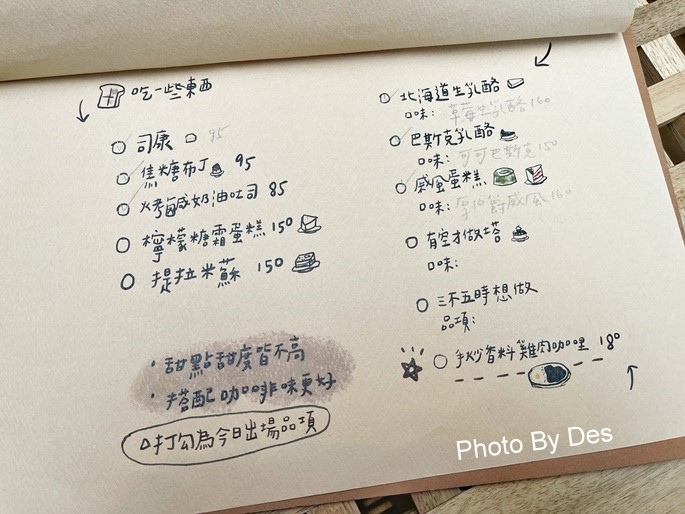 吃一些東西
司康 95
焦糖布丁 95
烤鹹奶油吐司 85
檸檬糖霜蛋糕 150
提拉米蘇 150
・甜點甜度皆不高
・搭配咖啡味更好
△打勾為今日出場品項
北海道生乳酪
口味: 草莓生乳酪 160
巴斯克乳酪
口味: 可可巴斯克 150
戚風蛋糕
口味: 伯爵戚風 160
有空才做塔
口味:
三不五時想做
品項:
手炒香料雞肉咖哩 180
Photo By Des